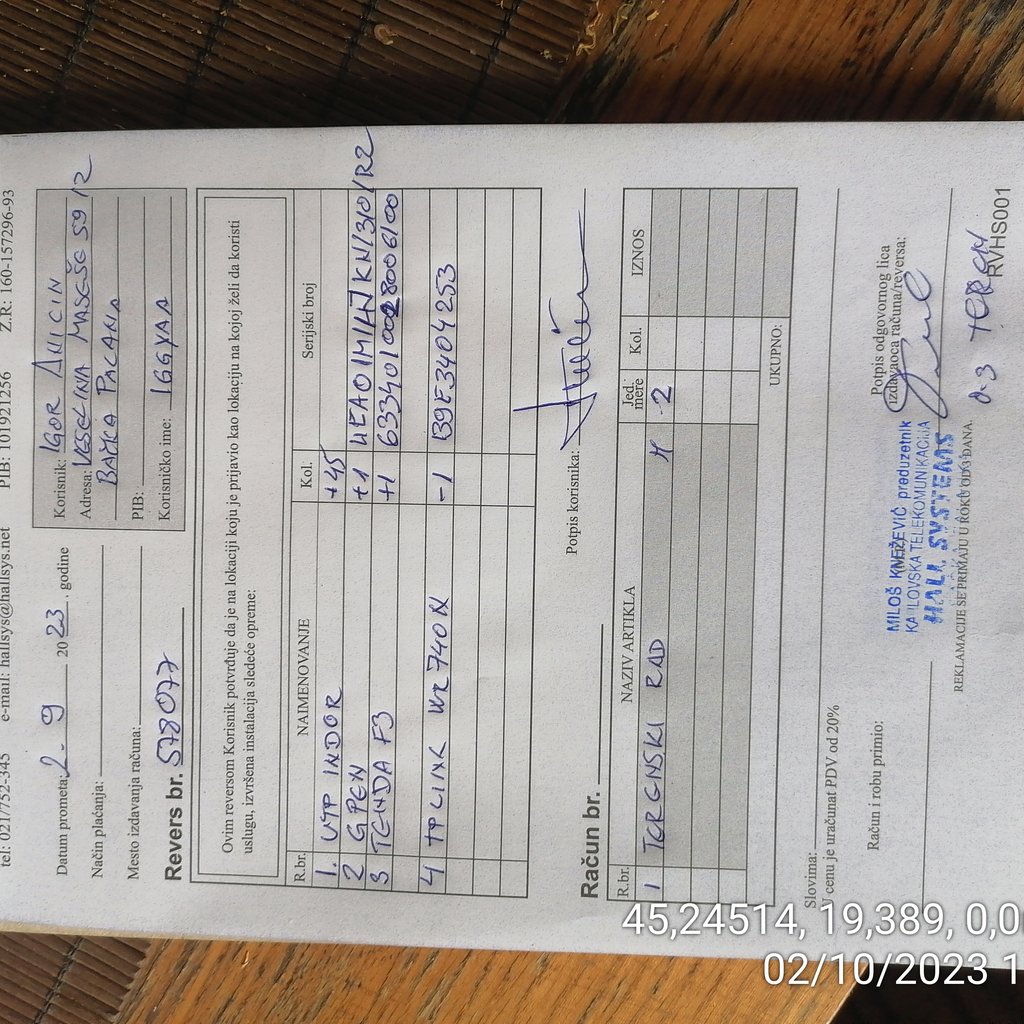 tel: 021/752-345 e-mail: hallsys@hallsys.net PIB: 101921256 Z.R: 160-157296-93
Datum prometa: 2. 9 2023. godine
Način plaćanja:
Mesto izdavanja računa:
Revers br. 578077
Korisnik: IGOR ANICIN
Adresa: VESELINA MASEŠE 59/2
BAČKA PALANA
PIB:
Korisničko ime: IGGYAA
Ovim reversom Korisnik potvrđuje da je na lokaciji koju je prijavio kao lokaciju na kojoj želi da koristi
uslugu, izvršena instalacija sledeće opreme:
R.br. NAIMENOVANJE Kol. Serijski broj
1. UTP INDOR +45
2 GPEN +1
3 TENDA F3 +1
4 TPLINK WR740N -1
Potpis korisnika:
Račun br.
R.br. NAZIV ARTIKLA Jed. mere Kol. IZNOS
1 TERENSKI RAD H 2
UKUPNO:
Slovima:
V cenu je uračunat PDV od 20%
Račun i robu primio:
Potpis odgovornog lica
izdavaoca računa/reversa:
MILOŠ KNEŽEVIĆ preduzetnik
KABLOVSKA TELEKOMUNIKACIJA
HALL SYSTEMS
REKLAMACIJE SE PRIMAJU U ROKU OD 3 DANA.
RVHS001
45,24514, 19,389, 0,0
02/10/2023 1